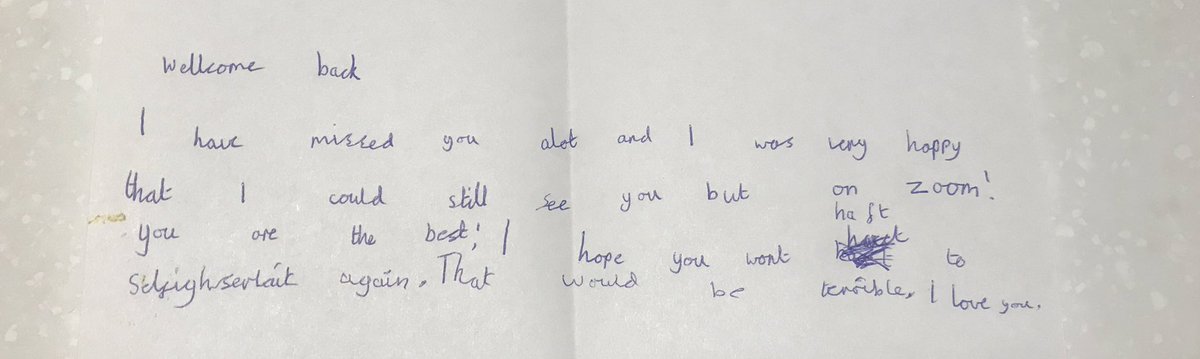 Wellcome back
I have missed you alot and I was very happy
that I could still see you but on zoom!
You are the best! I hope you wont haft to
Selfighserlait again. That would be terrible. I love you.